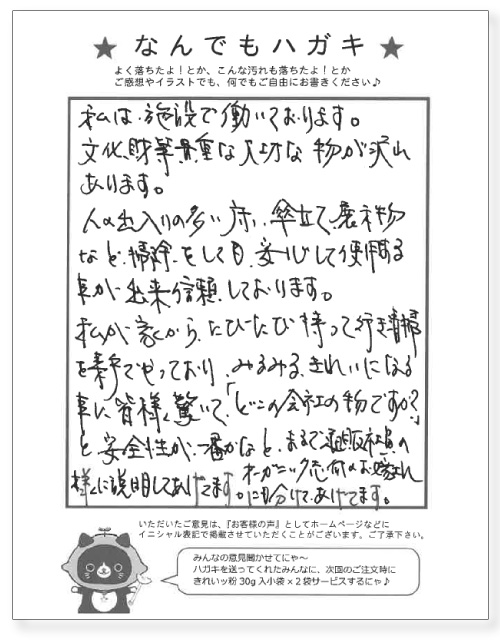 ★ なんでもハガキ ★
よく落ちたよ！とか、こんな汚れも落ちたよ！とか
ご感想やイラストでも、何でもご自由にお書きください♪
私は、施設で働いております。
文化財等貴重な大切な物が沢山
あります。
人の出入りの多い所、傘立て、展示物
など、掃除をしても、安心して使用する
事が出来信頼しております。
私が家から、たびたび持って行き清掃
を素手でやっており、みるみる、きれいになる
事に皆様、驚いて、「どこの会社の物ですか?」
と安全性が、一番かなと、まるで通販社員の
様に説明してあげてます。オーガニック志向のお嫁さん
にも分けて、あげてます。
いただいたご意見は、『お客様の声』としてホームページなどに
イニシャル表記で掲載させていただくことがございます。ご了承下さい。
みんなの意見聞かせてにゃ～
ハガキを送ってくれたみんなに、次回のご注文時に
きれいッ粉 30g 入小袋 × 2 袋サービスするにゃ♪